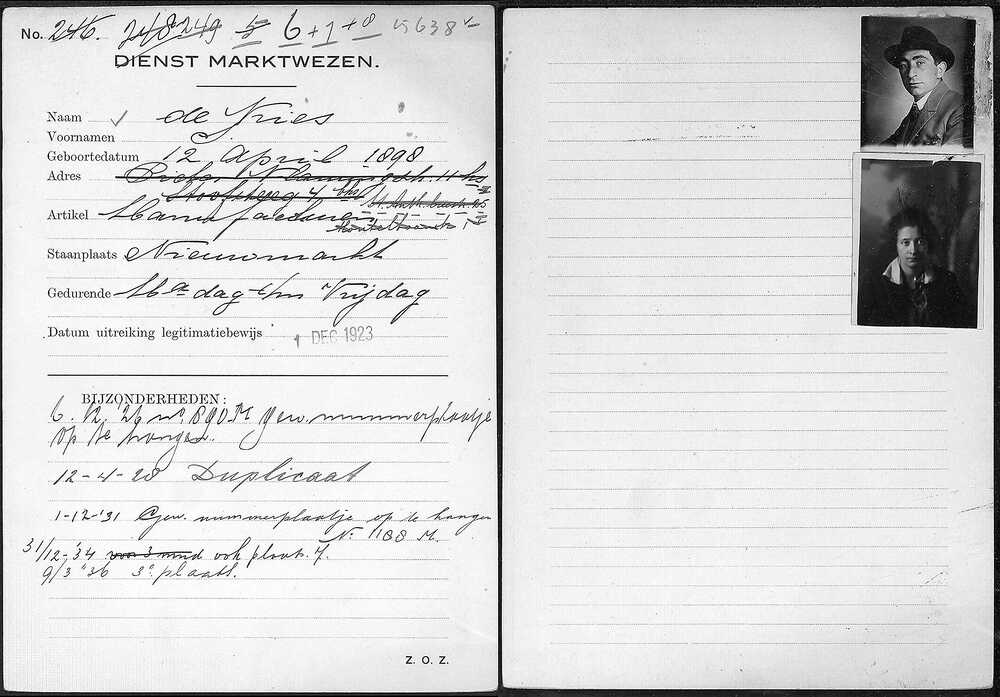 No. 246. 248 249 5 6+1+8 15638
DIENST MARKTWEZEN.
Naam de Vries
Voornamen
Geboortedatum 12 April 1898
Adres Pieter Vlamingstr. 11 hs
4 hs
Artikel
Staanplaats Nieuwmarkt
Gedurende Maandag t/m Vrijdag
Datum uitreiking legitimatiebewijs 1 DEC 1923
BIJZONDERHEDEN:
6. 12. '26 no. 890 M gew. nummerplaatje
op te hangen.
12-4-28 Duplicaat
1-12-'31 Gew. nummerplaatje op te hangen
No. 188 M.
31/12-'34 voor 3 mnd ook plaats 7.
9/3 '36 3e plaats.
Z. O. Z.